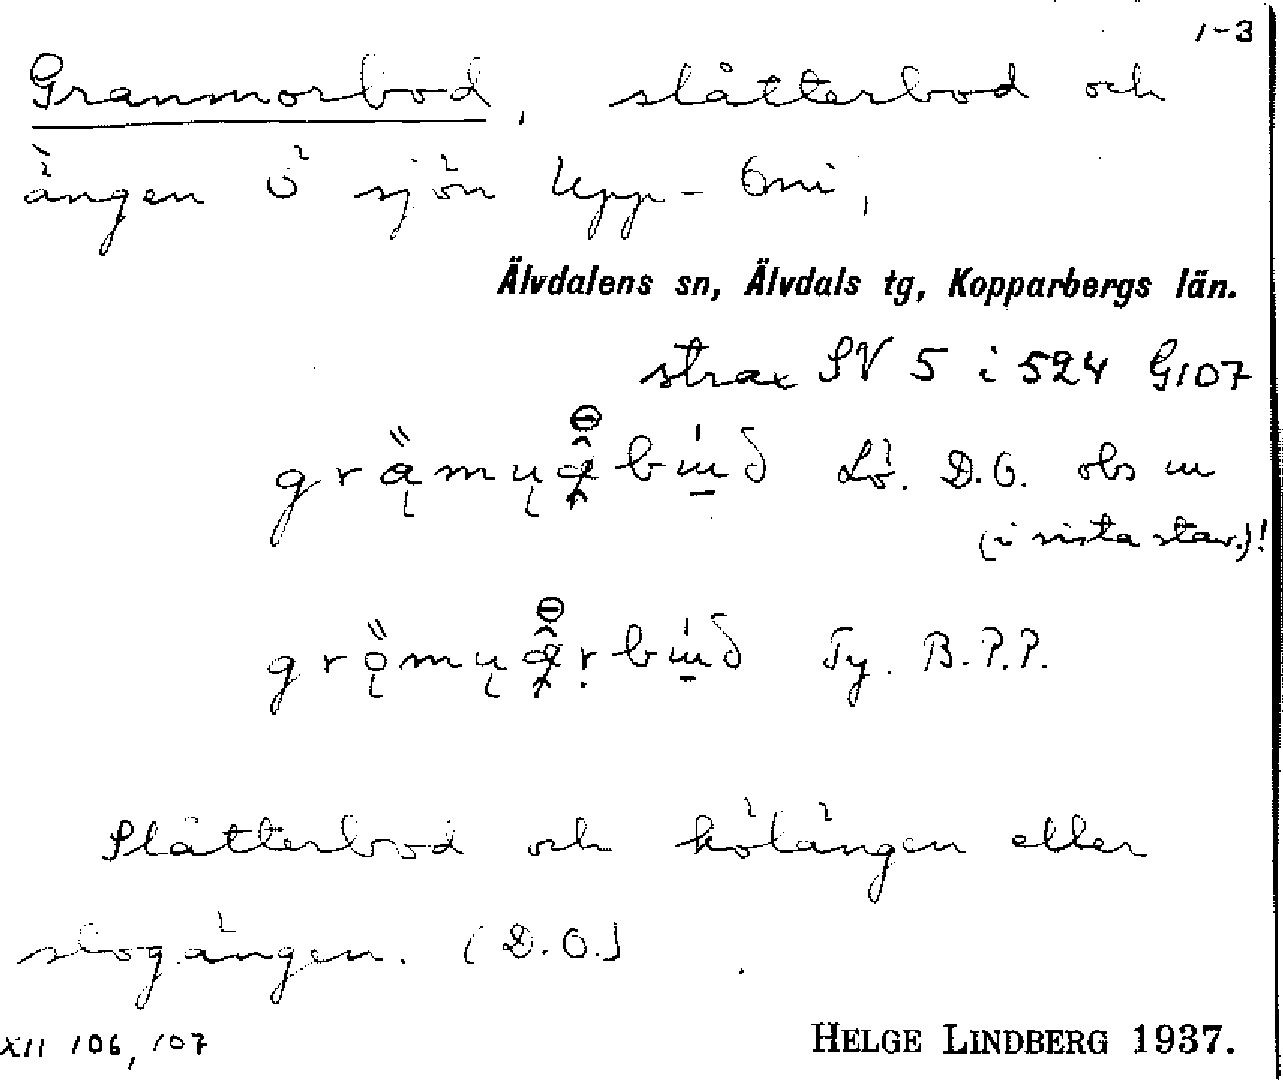 1-3
Granmorbod, slåtterbod och
ängen Ö sjön Upp-Omi,
Älvdalens sn, Älvdals tg, Kopparbergs län.
strax SV 5 i 524 G107
Lö. D.O. obs ɯ
(i sista stav.)!
Ty. B.P.P.
Slåtterbod och hölängen eller
slogängen. (D.O.)
XII 106, 107
HELGE LINDBERG 1937.